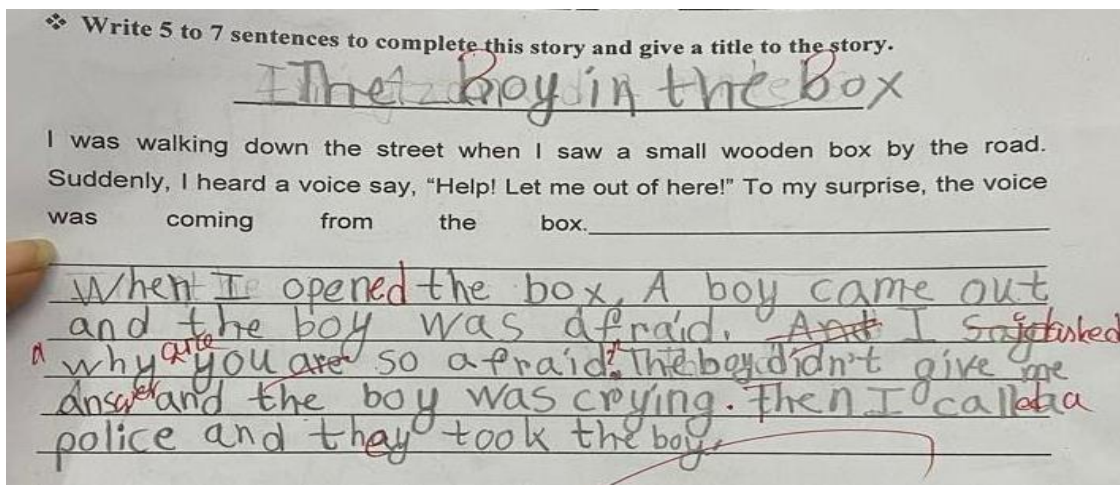 ❖ Write 5 to 7 sentences to complete this story and give a title to the story.
The Boy in the Box
I was walking down the street when I saw a small wooden box by the road.
Suddenly, I heard a voice say, “Help! Let me out of here!” To my surprise, the voice
was coming from the box.
When I opened the box, A boy came out
and the boy was afraid. And I asked
why are you are so afraid? The boy didn't give me
answer and the boy was crying. Then I called a
police and thay took the boy.